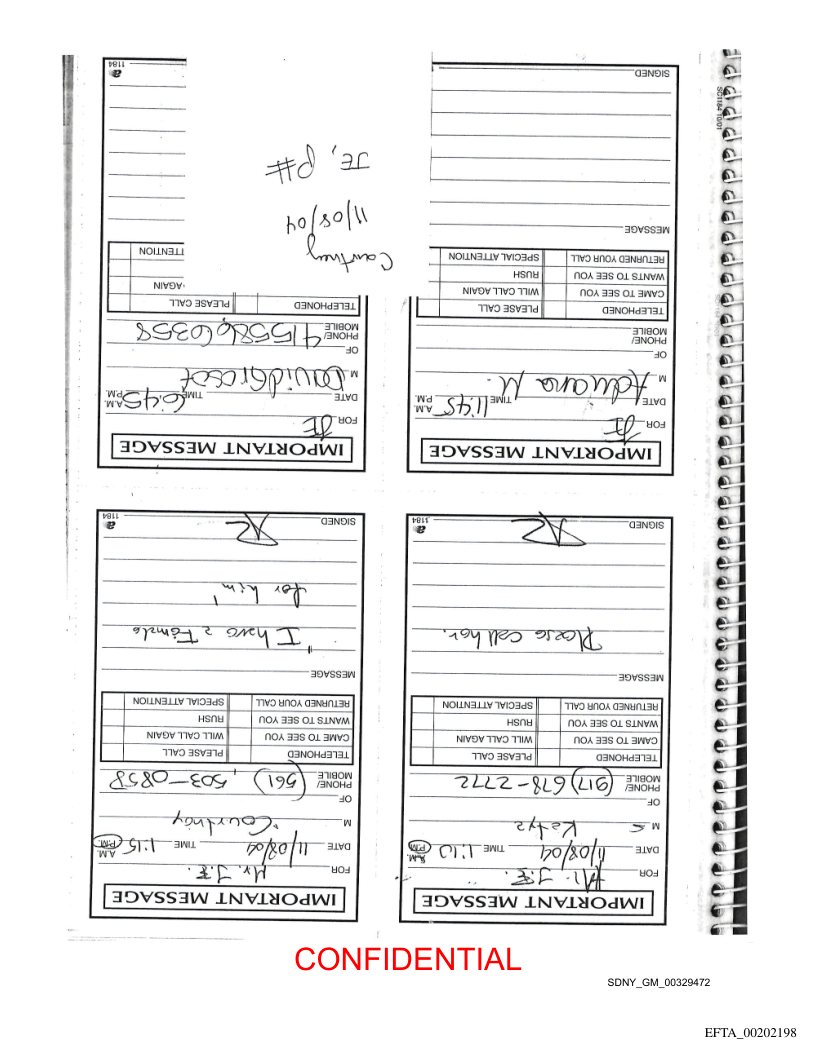 IMPORTANT MESSAGE
FOR Mr. J.E.
DATE 11/08/04 TIME 1:10 A.M. P.M.
M Katya
OF
PHONE/ MOBILE (917) 678-2772
TELEPHONED PLEASE CALL
CAME TO SEE YOU WILL CALL AGAIN
WANTS TO SEE YOU RUSH
RETURNED YOUR CALL SPECIAL ATTENTION
MESSAGE
Please call her.
SIGNED
1184
IMPORTANT MESSAGE
FOR Mr. J.E.
DATE 11/08/04 TIME 1:15 A.M. P.M.
M Courtney
OF
PHONE/ MOBILE (561) 503-0858
TELEPHONED PLEASE CALL
CAME TO SEE YOU WILL CALL AGAIN
WANTS TO SEE YOU RUSH
RETURNED YOUR CALL SPECIAL ATTENTION
MESSAGE
"I have a Female
for him"
SIGNED
1184
IMPORTANT MESSAGE
FOR JE
DATE TIME 11:45 A.M. P.M.
M Adriana M.
OF
PHONE/ MOBILE
TELEPHONED PLEASE CALL
CAME TO SEE YOU WILL CALL AGAIN
WANTS TO SEE YOU RUSH
RETURNED YOUR CALL SPECIAL ATTENTION
MESSAGE
SIGNED
SC1184 10/01
IMPORTANT MESSAGE
FOR JE
DATE TIME 6:45 A.M. P.M.
M David Grosof
OF
PHONE/ MOBILE 4155860358
TELEPHONED PLEASE CALL
AGAIN
TTENTION
1184
Courtney
11/08/04
JE, p#
CONFIDENTIAL
SDNY_GM_00329472
EFTA_00202198